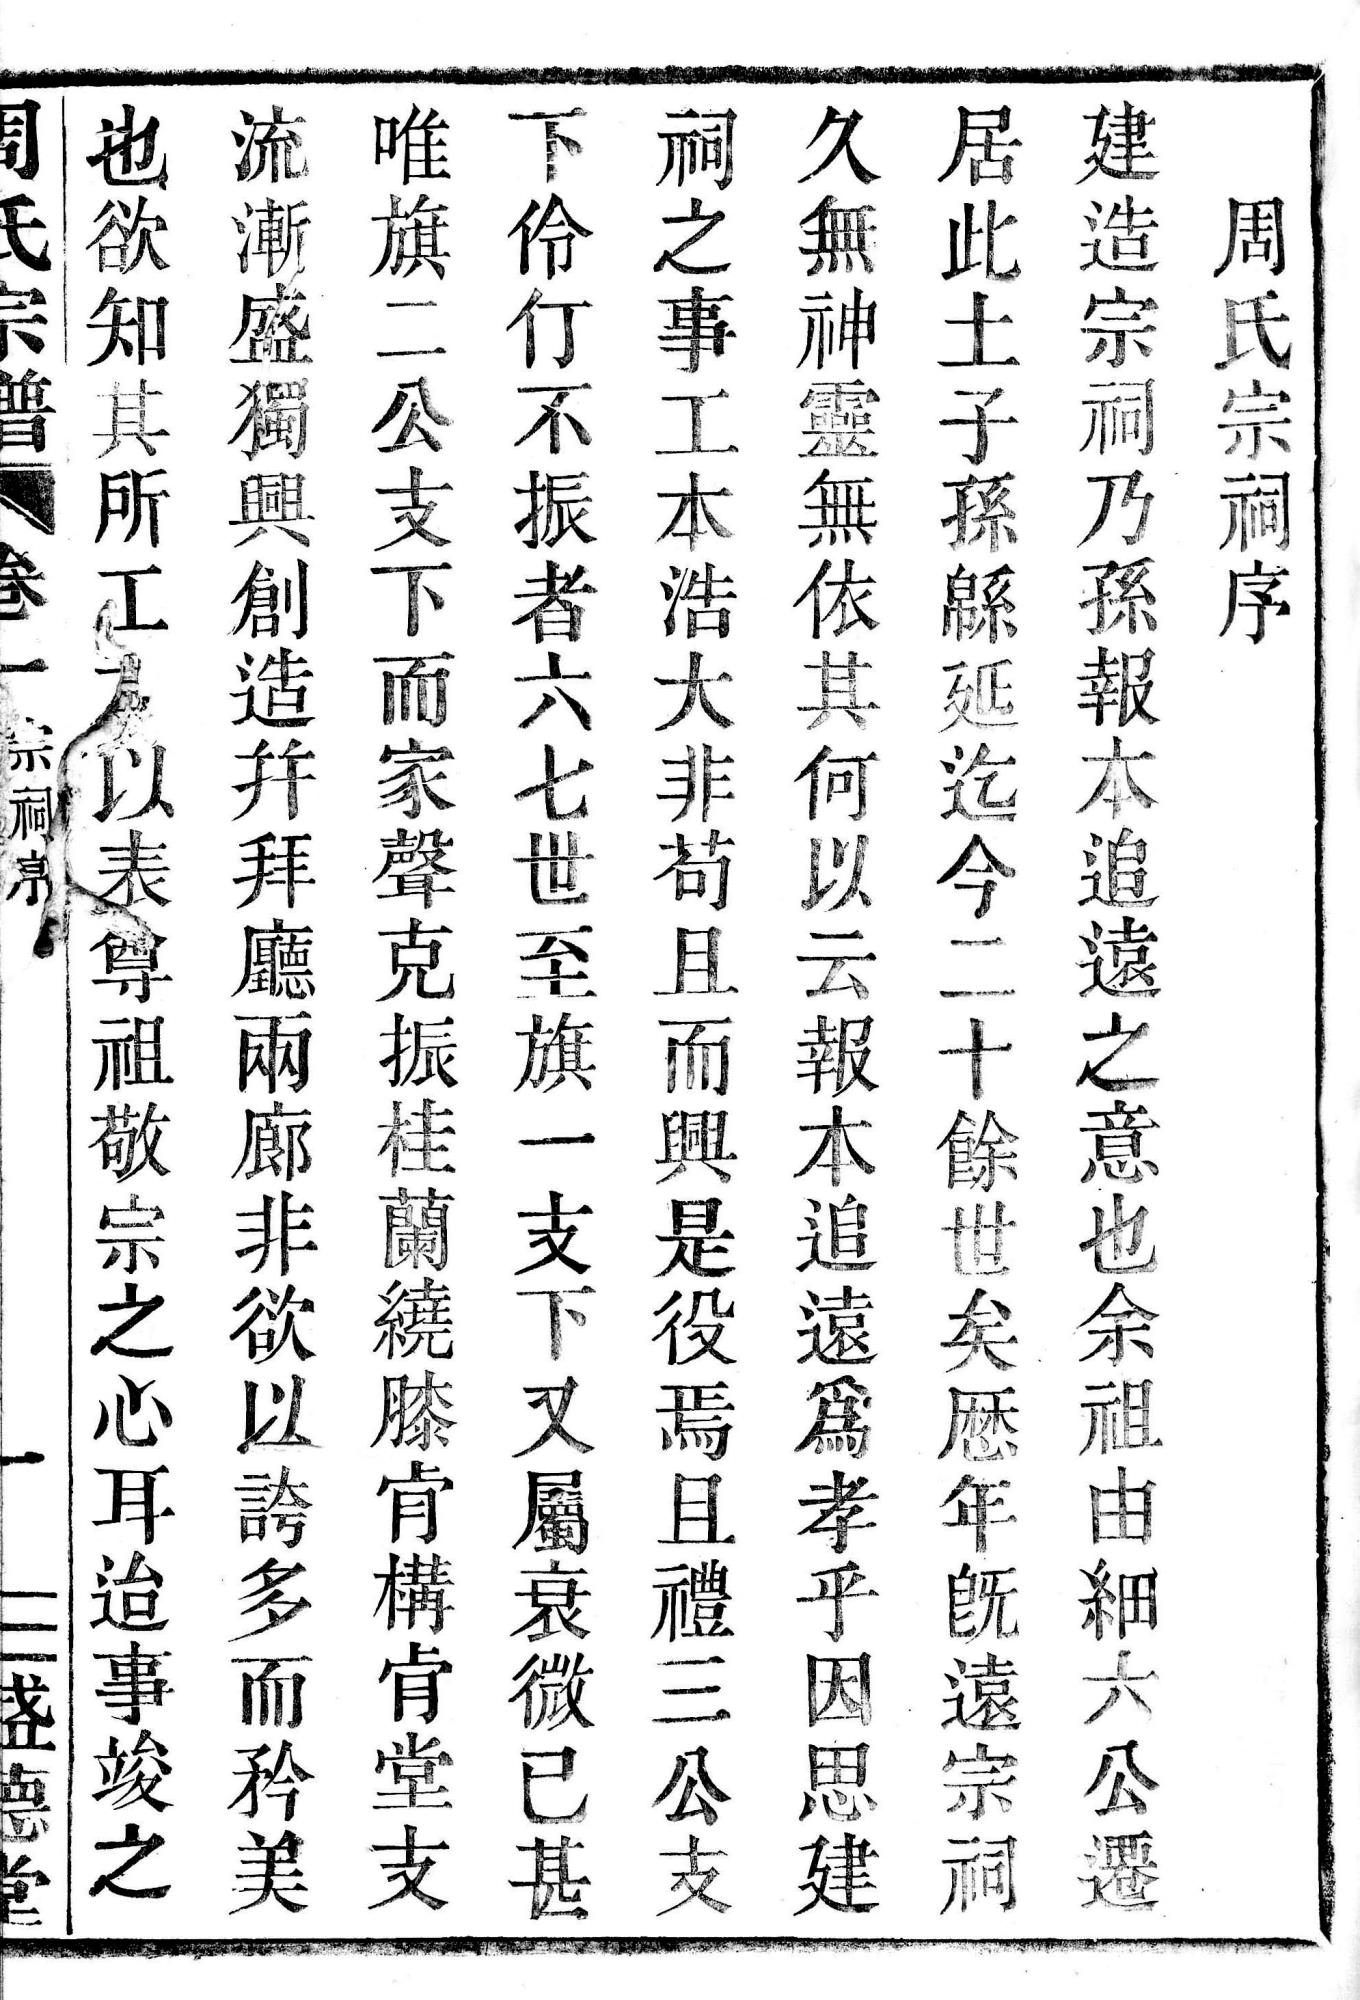 周氏宗祠序
建造宗祠乃孫報本追遠之意也余祖由細六公遷
居此土子孫緜延迄今二十餘世矣歷年旣遠宗祠
久無神靈無依其何以云報本追遠爲孝乎因思建
祠之事工本浩大非苟且而興是役焉且禮三公支
下伶仃不振者六七世至旗一支下又屬衰微已甚
唯旗二公支下而家聲克振桂蘭繞膝肯構肯堂支
流漸盛獨興創造幷拜廳兩廊非欲以誇多而矜美
也欲知其所工以表尊祖敬宗之心耳迨事竣之
周氏宗譜 卷一 宗祠序 一 盛德堂